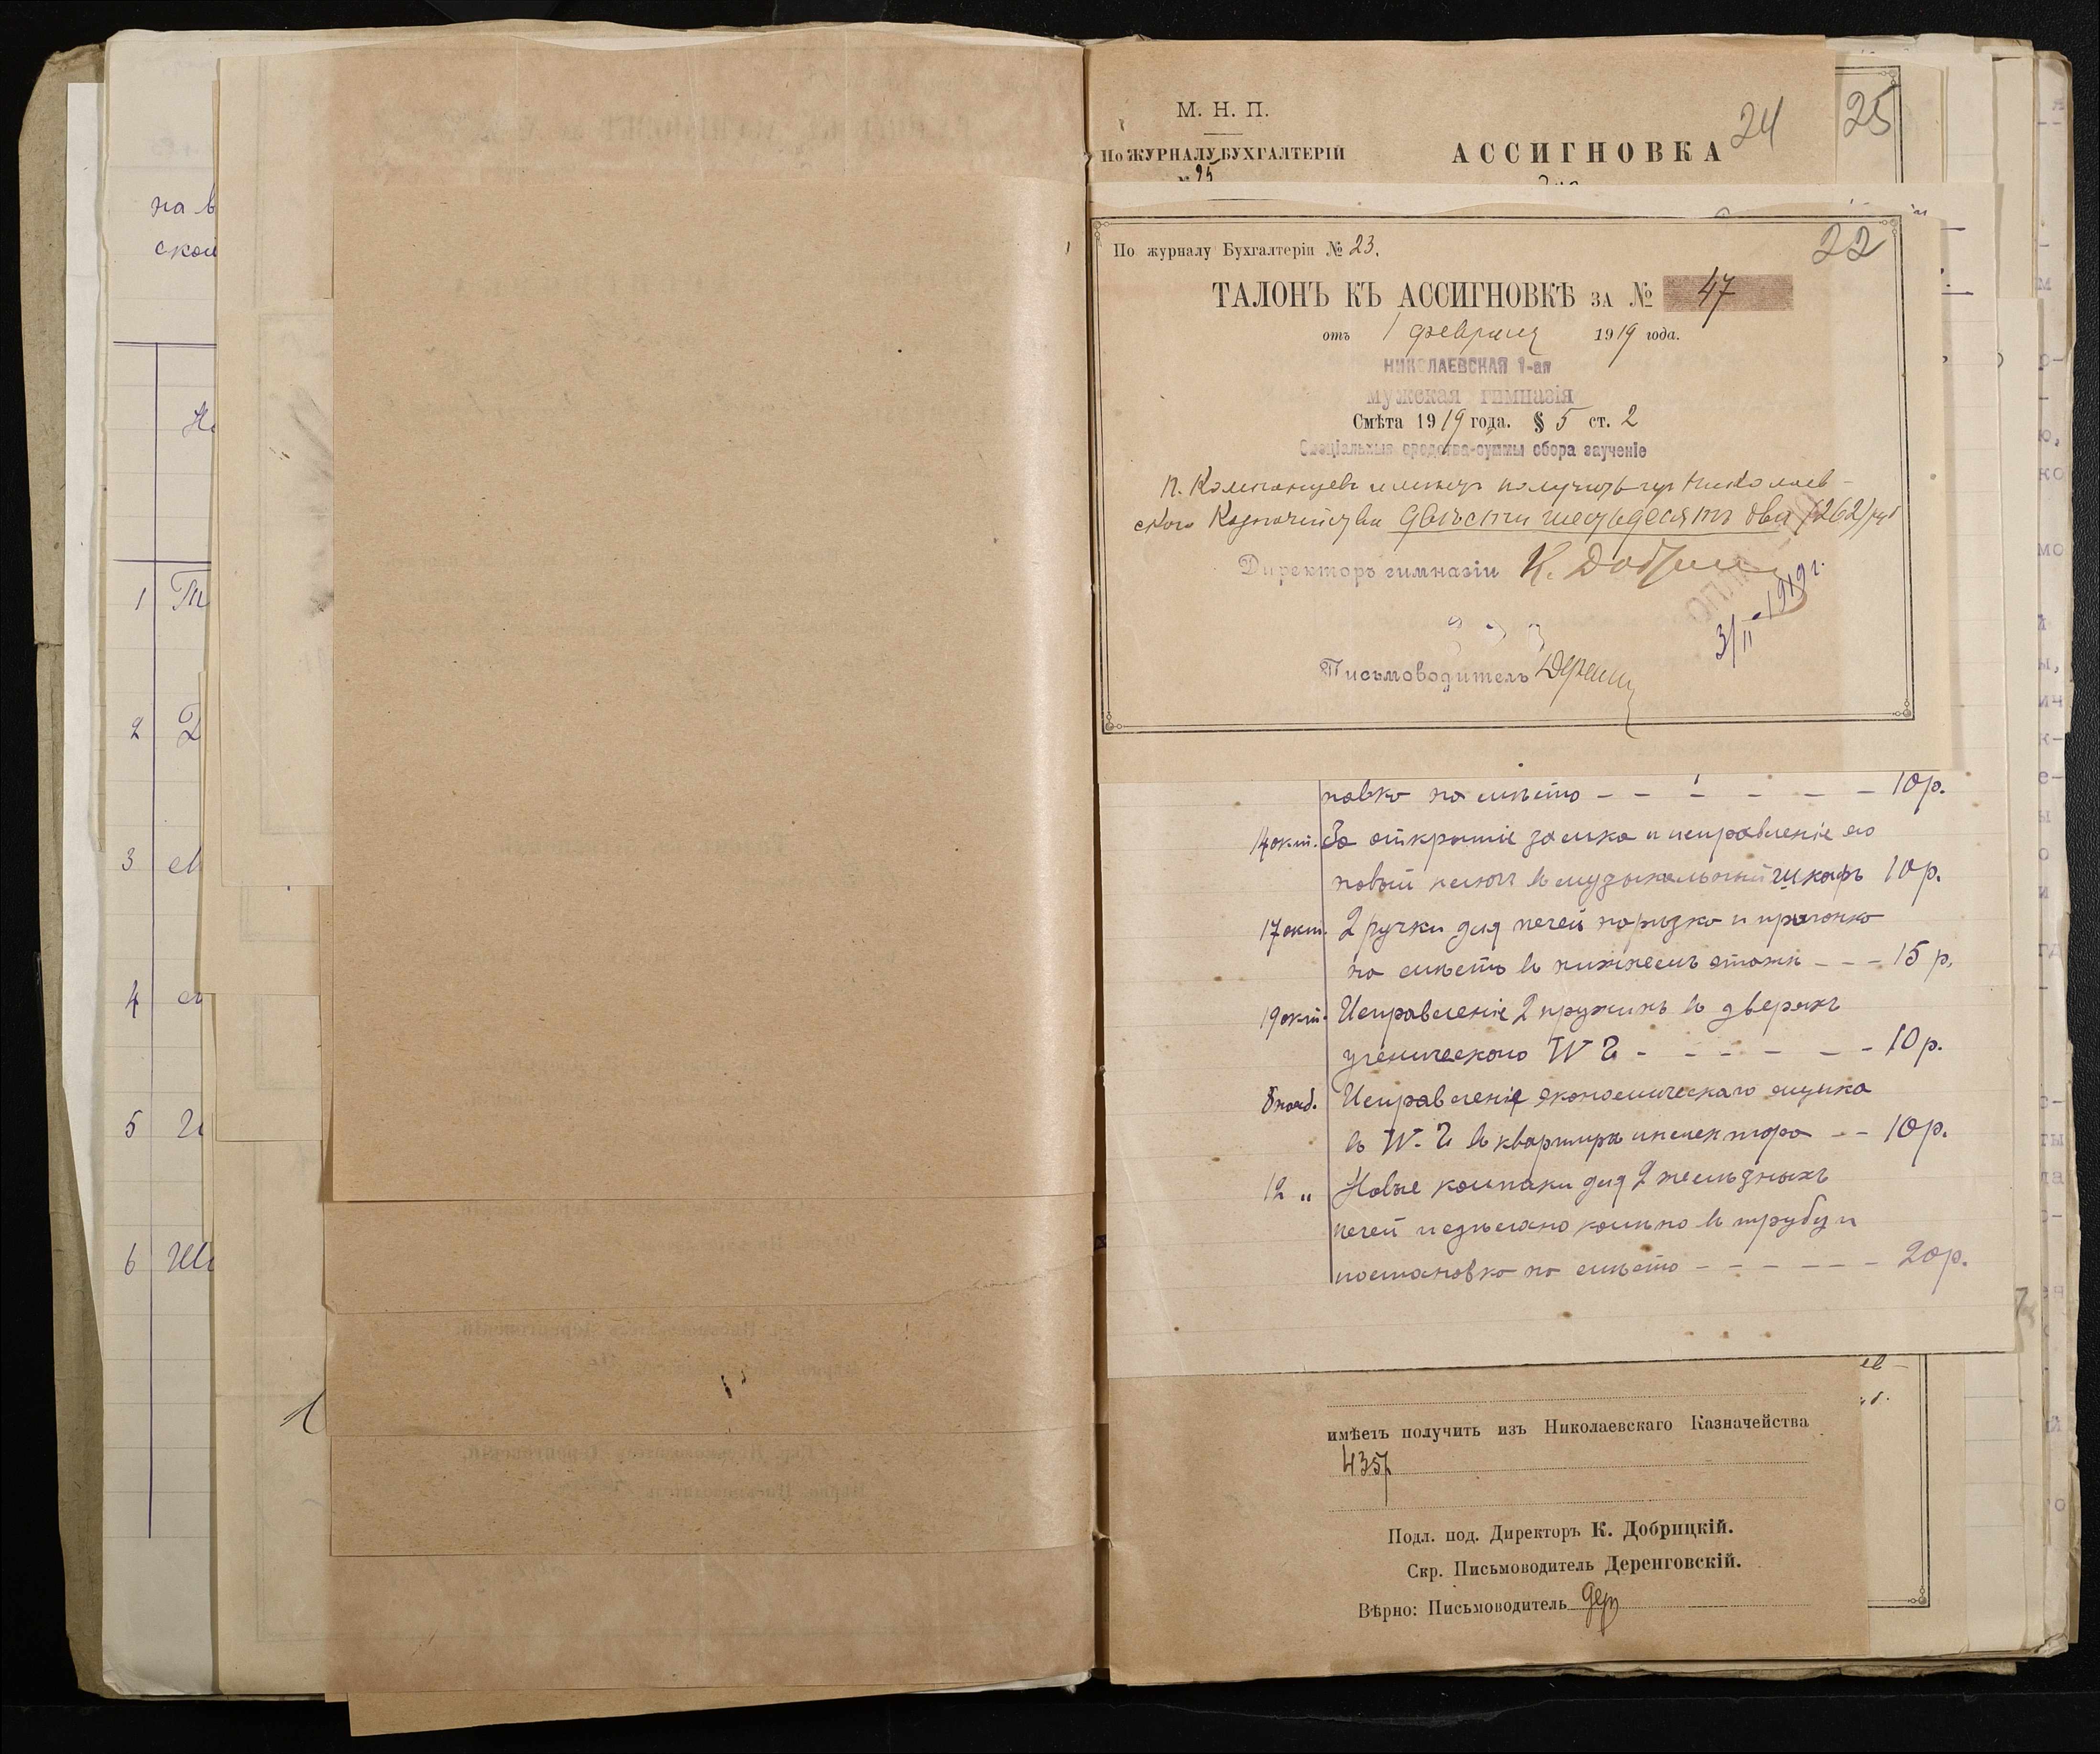 на в
ской
1
2
3
4
5
6
М. Н. П.
По ЖУРНАЛУ БУХГАЛТЕРІИ
№ 25
АССИГНОВКА
24
25
По журналу Бухгалтеріи № 23.
22
ТАЛОНЪ КЪ АССИГНОВКѢ ЗА № 47
отъ 1 февраля 1919 года.
НИКОЛАЕВСКАЯ 1-ая
мужская гимназія
Смѣта 1919 года. § 5 ст. 2
Спеціальныя средства-суммы сбора заученіе
имѣетъ получить изъ Николаев-
скаго Казначейства двѣсти шестьдесятъ два (262) руб
Директоръ гимназіи К.
3/II 1919 г.
Письмоводитель
новка на мѣсто – – – – – – 10р.
14 окт. За открытіе замка и исправленіе его
новый ключъ въ музыкальный шкафъ 10р.
17 окт. 2 ручки для печей нарѣзка и пригонка
на мѣсто въ нижнемъ этажѣ – – – 15 р.
19 окт. Исправленіе 2 пружинъ въ дверяхъ
ученическаго W C – – – – – – 10р.
8 нояб. Исправленіе экономическаго ящика
въ W. C въ квартирѣ инспектора – – 10р.
12 „ Новые колпаки для 2 желѣзныхъ
печей и сдѣлано колѣно въ трубу и
постановка на мѣсто – – – – – – 20р.
имѣетъ получить изъ Николаевскаго Казначейства
435р
Подл. под. Директоръ К. Добрицкій.
Скр. Письмоводитель Деренговскій.
Вѣрно: Письмоводитель Дер